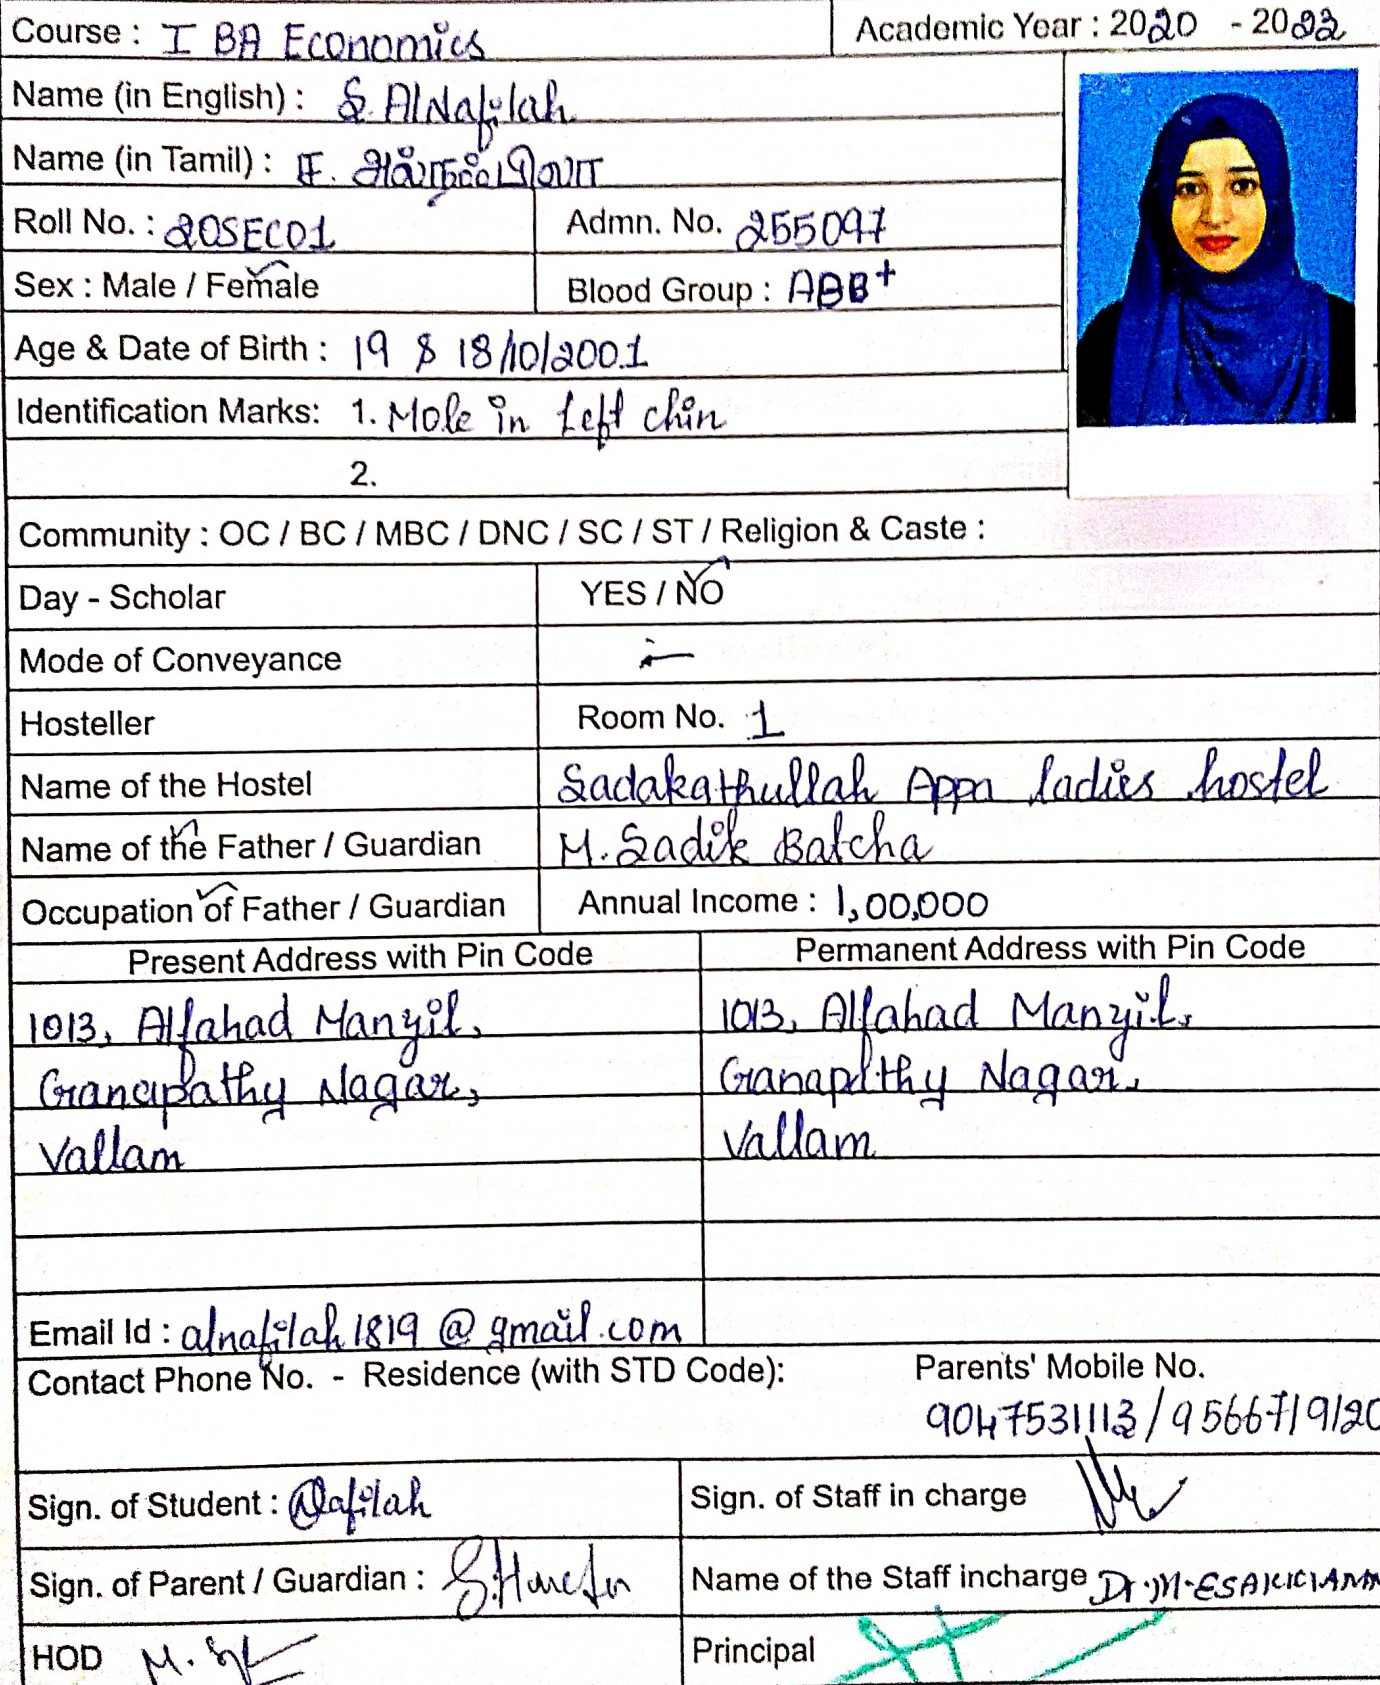 Course : I BA Economics
Academic Year : 2020 - 2022
Name (in English) : S. AlNafilah
Name (in Tamil) :
Roll No. : 20SEC01
Admn. No. 255097
Sex : Male / Female
Blood Group :
Age & Date of Birth : 19 & 18/10/2001
Identification Marks: 1. Mole in Left chin
2.
Community : OC / BC / MBC / DNC / SC / ST / Religion & Caste :
Day - Scholar YES / NO
Mode of Conveyance
Hosteller Room No. 1
Name of the Hostel Sadakathullah Appa ladies hostel
Name of the Father / Guardian M. Sadik Batcha
Occupation of Father / Guardian Annual Income : 1,00,000
Present Address with Pin Code
1013, Alfahad Manyil,
Ganapathy Nagar,
Vallam
Permanent Address with Pin Code
1013, Alfahad Manyil,
Nagar,
Vallam
Email Id : alnafilah1819@gmail.com
Contact Phone No. - Residence (with STD Code):
Parents' Mobile No.
/ 9566719120
Sign. of Student : Nafilah
Sign. of Staff in charge
Sign. of Parent / Guardian :
Name of the Staff incharge Dr. M.
HOD
Principal